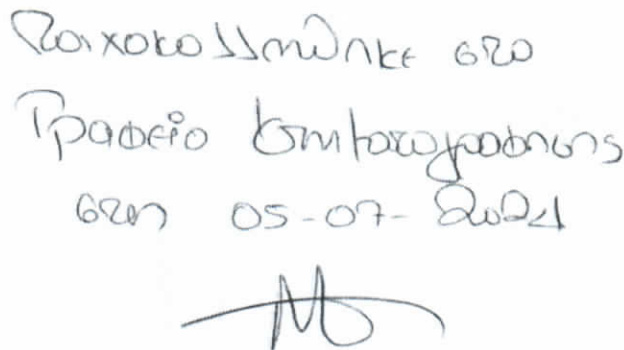 Τοιχοκολλήθηκε στο
Γραφείο Κτηματογράφησης
στη 05-07-2021